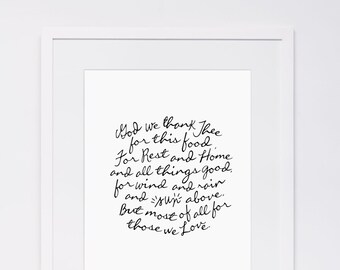 God we thank Thee
for this food
For Rest and Home
and all things good,
for wind and rain
and sun above
But most of all for
those we Love